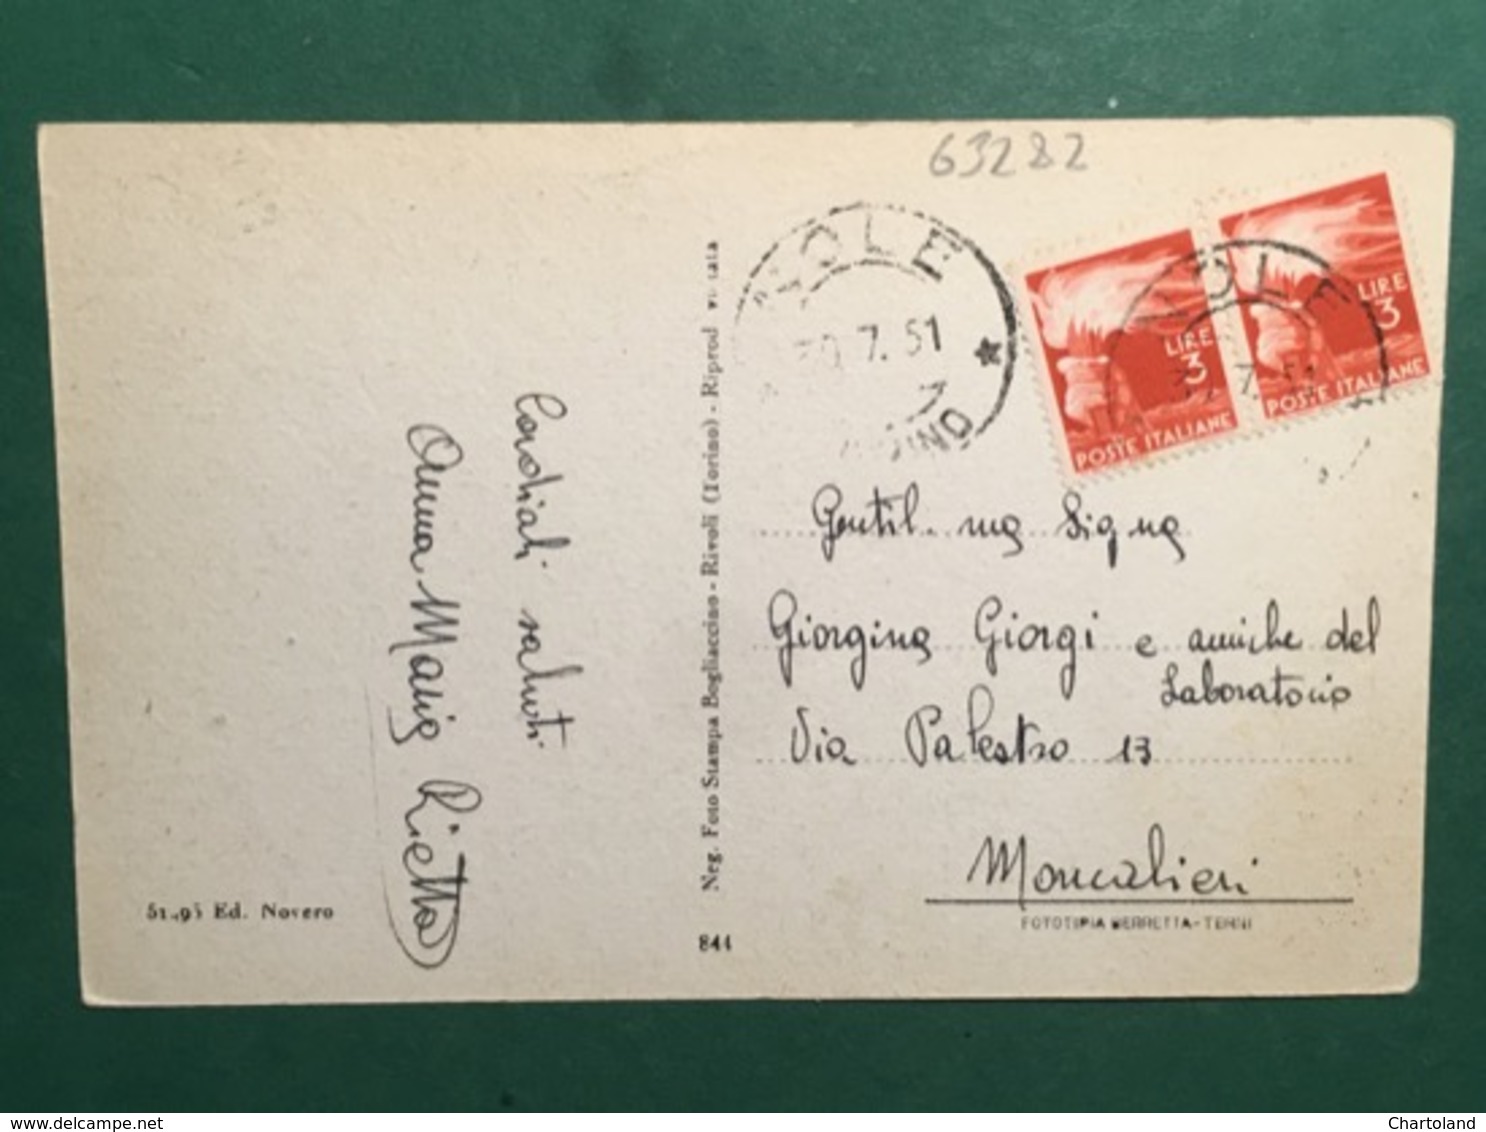 63282
OLE
7.51
LIRE
3
POSTE ITALIANE
LIRE
3
POSTE ITALIANE
Cordiali saluti
Anna Maria Rietto
Neg. Foto Stampa Bogliaccino - Rivoli (Torino) - Riprod vietata
Gentil.ma Signa
Giorgina Giorgi e amiche del
Laboratorio
Via Palestro 13
Moncalieri
FOTOTIPIA BERRETTA-TERNI
Ed. Novero
844
www.delcampe.net
Chartoland